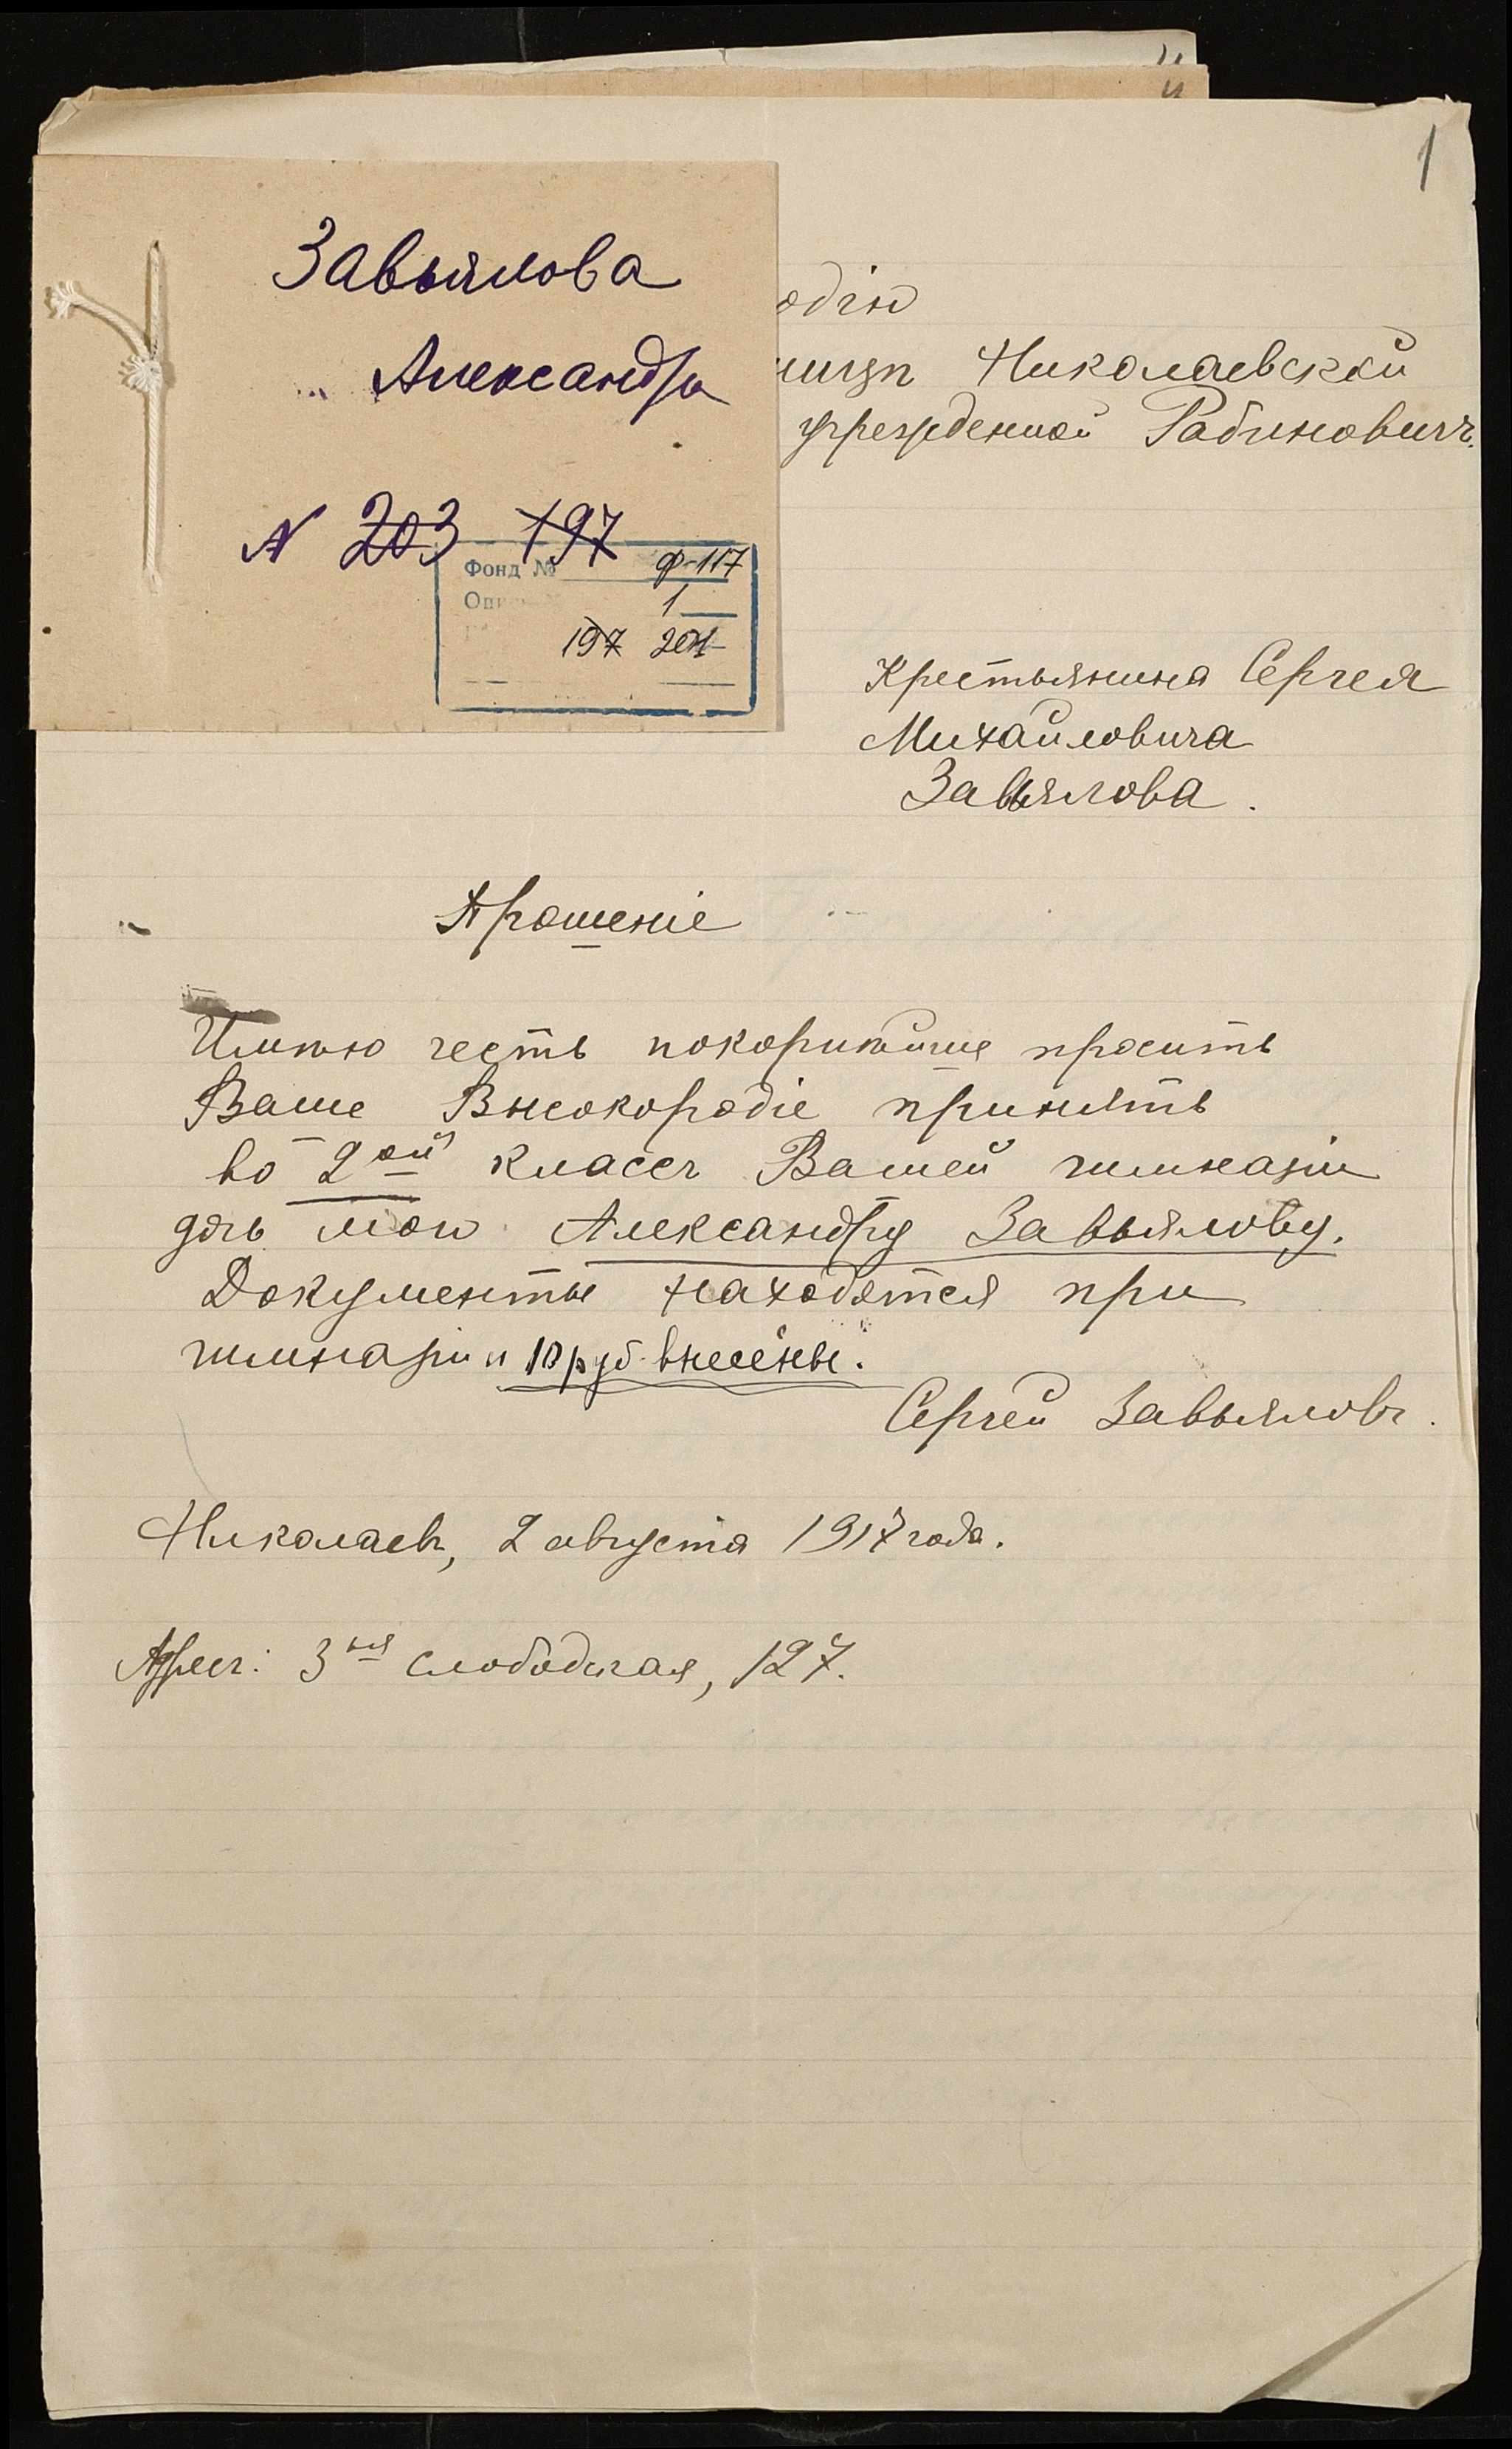 1
Завьялова
Александра
N 203 197
Фонд № Ф-117
1
197 201
одію
Николаевской
учрежденной Рабиновичъ.
Крестьянина Сергея
Михайловича
Завьялова.
Прошеніе
Имѣю честь покорнѣйше просить
Ваше Высокородіе принять
во 2ой классъ Вашей гимназіи
дочь мою Александру Завьялову.
Документы находятся при
гимназіи и 10 руб. внесены.
Сергей Завьяловъ.
Николаевъ, 2 августа 1917 года.
Адресъ: 3ья Слободская, 127.